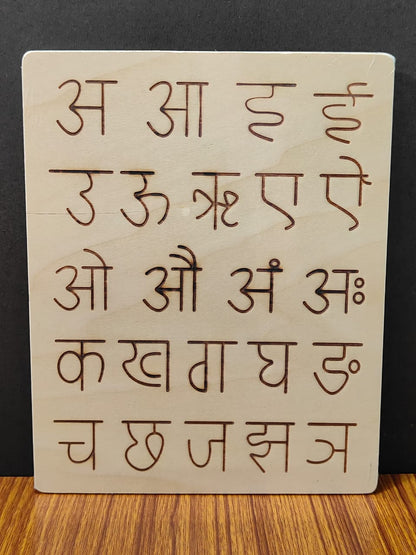 अ आ इ ई
उ ऊ ऋ ए ऐ
ओ औ अं अः
क ख ग घ ङ
च छ ज झ ञ